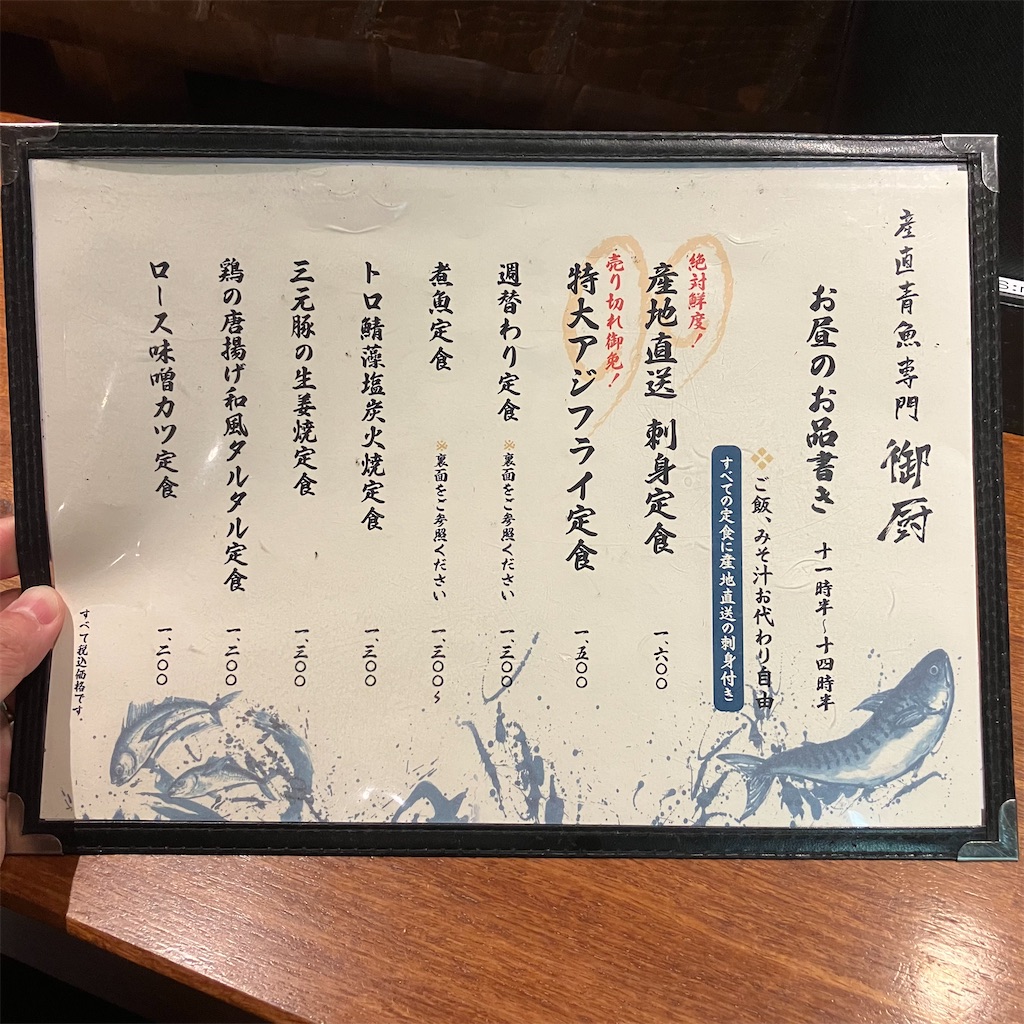 産直青魚専門 御厨
お昼のお品書き 十一時半〜十四時半
ご飯、みそ汁お代わり自由
すべての定食に産地直送の刺身付き
絶対鮮度！
産地直送 刺身定食 一、六〇〇
売り切れ御免！
特大アジフライ定食 一、五〇〇
週替わり定食 ※裏面をご参照ください 一、三〇〇
煮魚定食 ※裏面をご参照ください 一、三〇〇〜
トロ鯖藻塩炭火焼定食 一、三〇〇
三元豚の生姜焼定食 一、三〇〇
鶏の唐揚げ和風タルタル定食 一、二〇〇
ロース味噌カツ定食 一、二〇〇
すべて税込価格です。